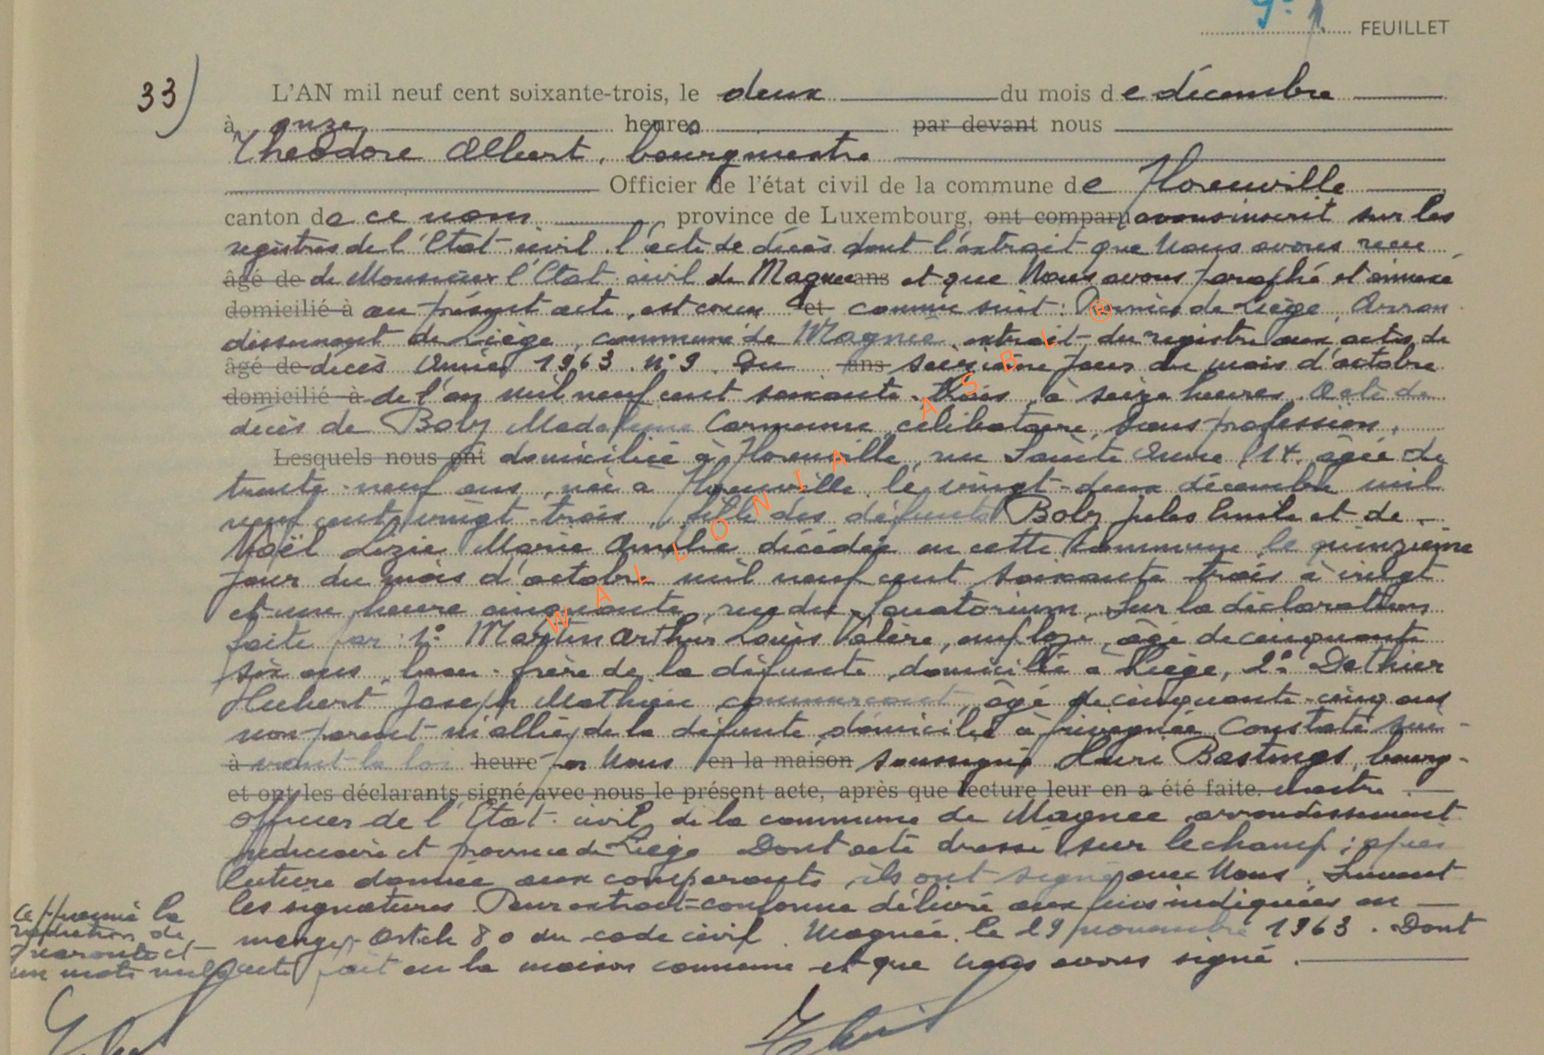 9.
FEUILLET
33)
L'AN mil neuf cent soixante-trois, le deux du mois de décembre
à onze heures par devant nous
Théodore Albert, bourgmestre
Officier de l'état civil de la commune de Florenville
canton de ce nom, province de Luxembourg, ont comparu avons inscrit sur les
registres de l'Etat-civil l'acte de décès dont l'extrait que Nous avons reçu
âgé de de Monsieur l'Etat civil de Magnée ans et que Nous avons paraphé et annexé
domicilié à au présent acte, est conçu et comme suit: Province de Liège, Arron
dissement de Liège, commune de Magnée, extrait du registre aux actes de
âgé de décès Année 1963 N°9. Du ans seizième jour du mois d'octobre
domicilié à de l'an mil neuf cent soixante-trois, à seize heures. Acte de
décès de Boly Madeleine Carmenne, célibataire, sans profession,
Lesquels nous ont domiciliée à Florenville, rue Sainte Anne, 14, âgée de
trente-neuf ans, née à Florenville, le vingt-deux décembre mil
neuf cent vingt-trois, fille des défunts Boly Jules Emile et de
Noël Lézie Marie Amélie décédée en cette commune, le quinzième
jour du mois d'octobre mil neuf cent soixante trois à vingt
et une heure cinquante, rue du Sanatorium. Sur la déclaration
faite par: 1° Martin Arthur Louis Valère, employé, âgé de cinquante
six ans, beau-frère de la défunte, domicilié à Liège, 2° Dethier
Hubert Joseph Mathieu commerçant, âgé de cinquante-cinq ans
non parent ni allié de la défunte, domicilié à Constaté sui-
à vant la loi heure par Nous en la maison soussigné Bastings, bourg-
et ont les déclarants signé avec nous le présent acte, après que lecture leur en a été faite. mestre
Officier de l'Etat-civil de la commune de Magnée arrondissement
judiciaire et province de Liège Dont acte dressé sur le champ; après
lecture donnée aux comparants, ils ont signé avec Nous. Suivent
les signatures. Pour extrait conforme délivré aux fins indiquées en
marge, Article 80 du code civil. Magnée, le 29 novembre 1963. Dont
acte fait en la maison commune et que nous avons signé.
approuvé la
radiation de
quarante et
un mots nuls
WALLONIA ASBL ®